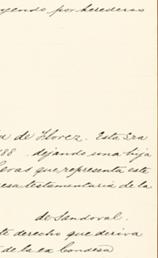 yendo por herederas
a de Florez. Esta era
88 dejando una hija
que representa este
esa testamentaria de la
de Sandoval.
te derecho que deriva
de la ex Condesa